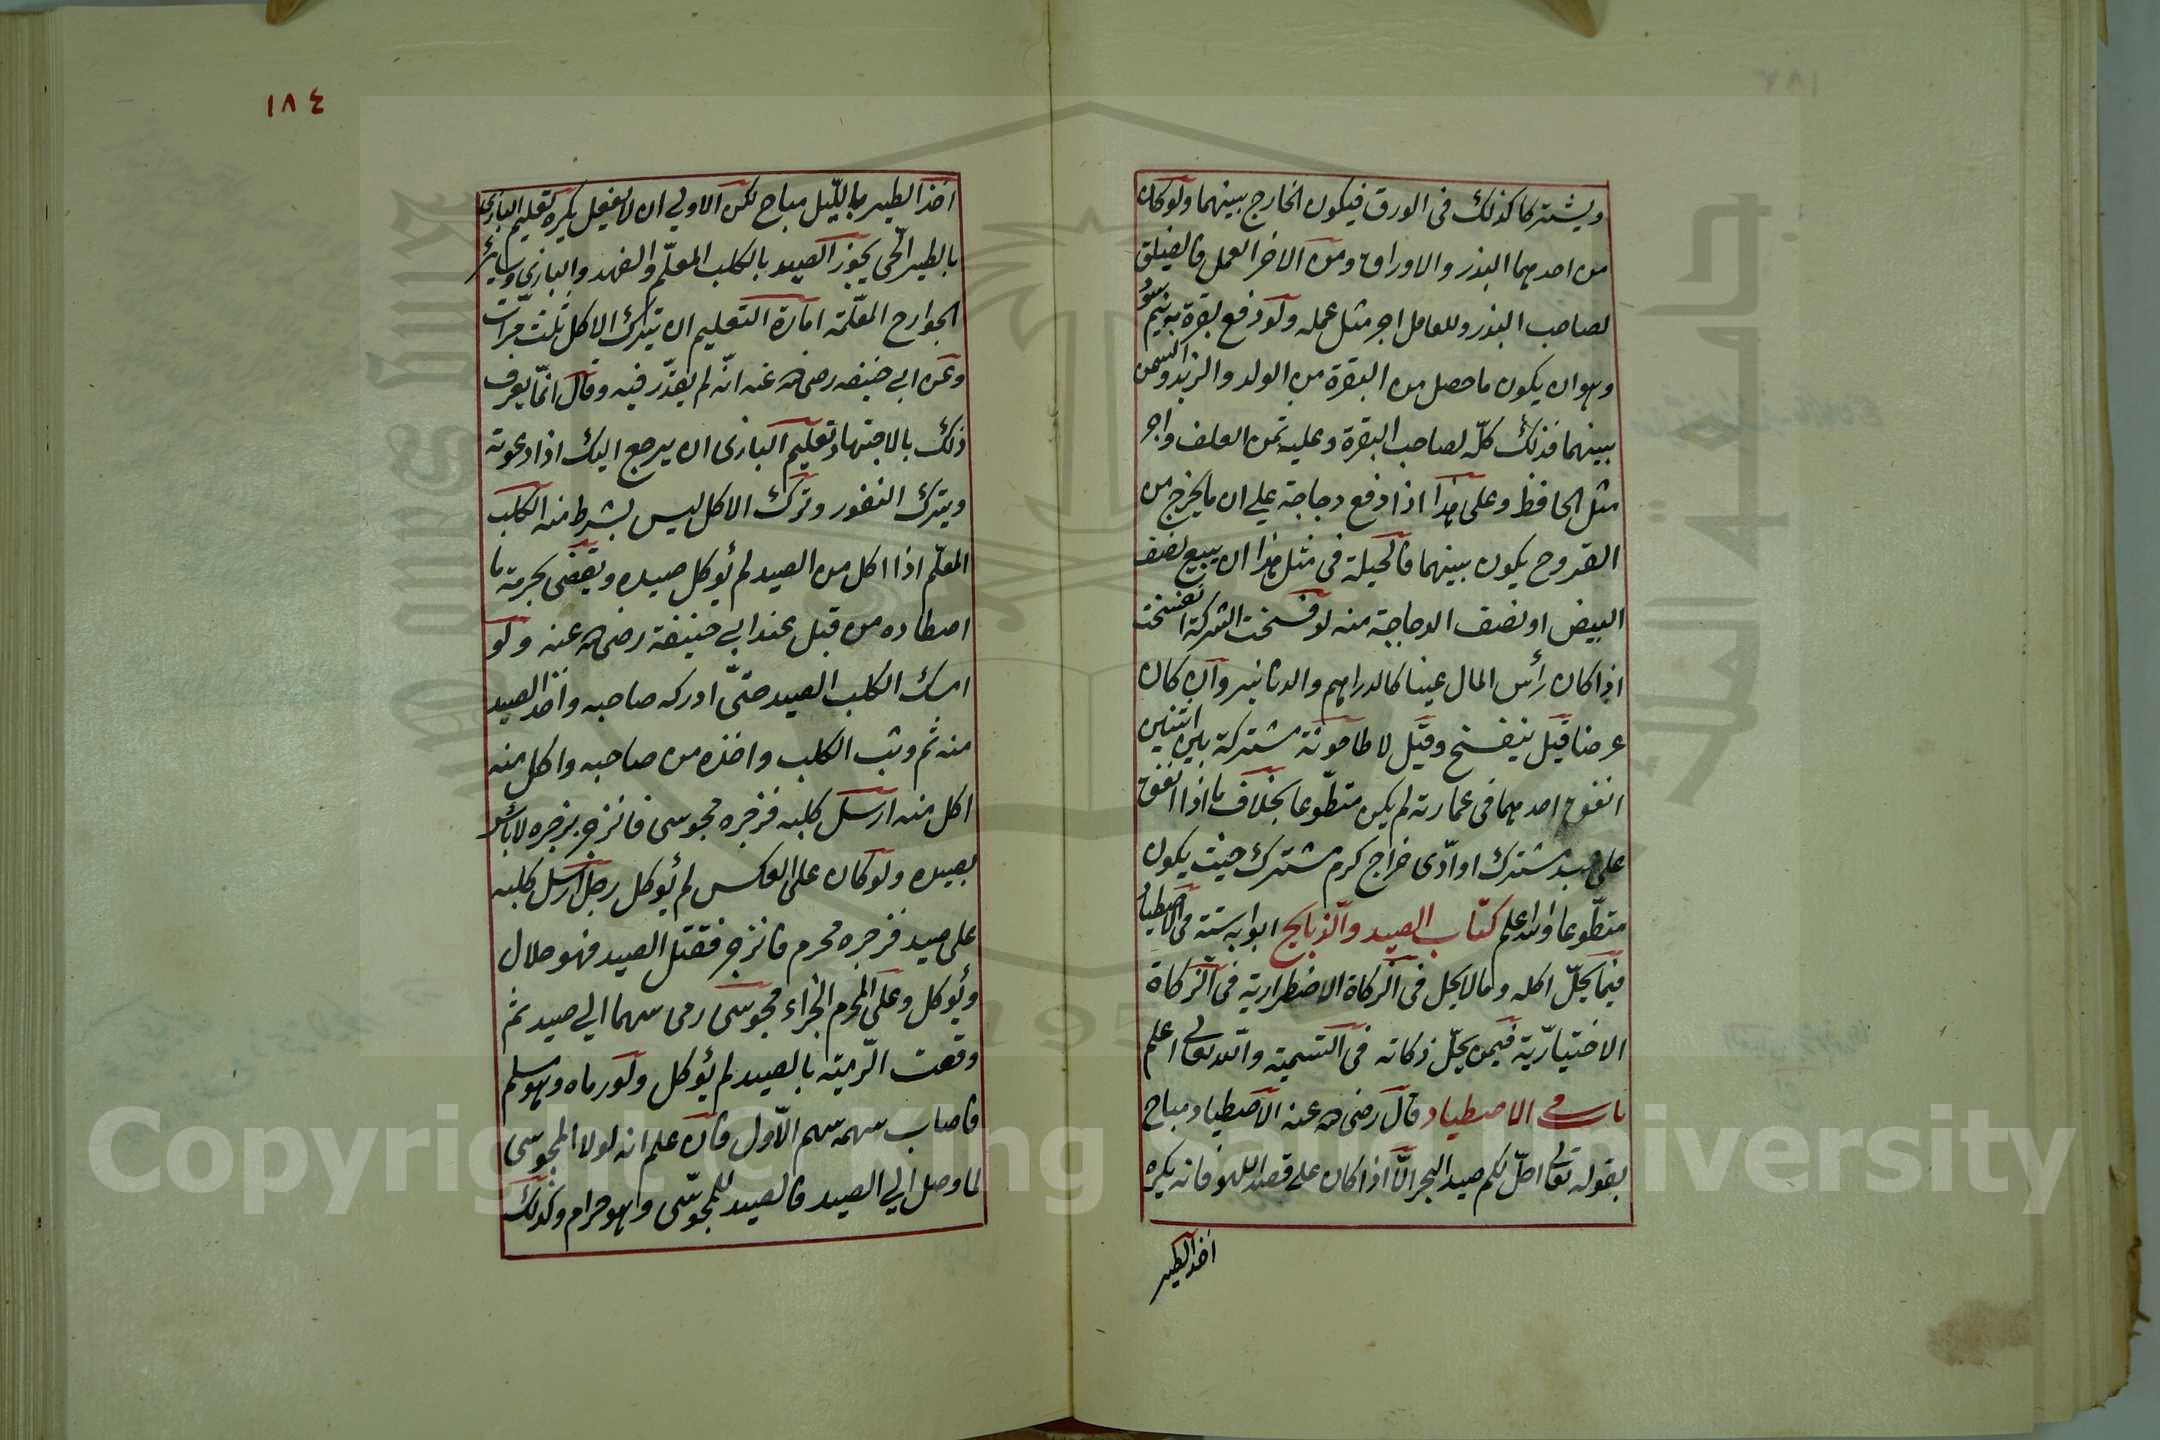 ويشتركا كذلك فى الورق فيكون الخارج بينهما ولو كان
من احدهما البذر والاوراق ومن الاخر العمل فالفيلق
لصاحب البذر وللعامل اجر مثل عمله ولو دفع بقرة بنيم سود
وهو ان يكون ما حصل من البقرة من الولد والزبد والسمن
بينهما فذلك كلّه لصاحب البقرة وعليه ثمن العلف واجر
مثل الحافظ وعلى هذا اذا دفع دجاجة على ان ما يخرج من
الفروج يكون بينهما فالحيلة فى مثل هذا ان يبيع نصف
البيض او نصف الدجاجة منه لو فسخت الشركة انفسخت
اذا كان رأس المال عينا كالدراهم والدنانير وان كان
عرضا قيل ينفسخ وقيل لا طاحونة مشتركة بين اثنين
انفق احدهما فى عمارته لم يكن متطوعا بخلاف ما اذا انفق
على عبد مشترك او ادّى خراج كرم مشترك حيث يكون
متطوعا والله اعلم كتاب الصيد والذبايح ابوابه ستة فى الاصطياد
فيما يحلّ اكله وما لا يحل فى الزكاة الاضطرارية فى الزكاة
الاختيارية فيمن يحلّ زكاته فى التسمية والله تعالى اعلم
باب فى الاصطياد قال رضى الله عنه الاصطياد مباح
بقوله تعالى احلّ لكم صيد البحر الّا اذا كان على قصد اللهو فانه يكره
اخذ الطير
١٨٤
اخذ الطير بالليل مباح لكن الاولى ان لا يفعل يكره تعليم البازى
بالطير الحى يجوز الصيد بالكلب المعلّم والفهد والبازى وسائر
الجوارح المعلّمة امارة التعليم ان يترك الاكل ثلث مرات
وعن ابى حنيفه رضى الله عنه انّه لم يقدّر فيه وقال انّما يعرف
ذلك بالاجتهاد وتعليم البازى ان يرجع اليك اذا دعوته
ويترك النفور وترك الاكل ليس بشرط منه الكلب
المعلّم اذا اكل من الصيد لم يؤكل صيده ويقضى بحرمة ما
اصطاده من قبل عند ابى حنيفة رضى الله عنه ولو
امسك الكلب الصيد حتّى ادركه صاحبه واخذ الصيد
منه ثم وثب الكلب واخذه من صاحبه واكل منه
اكل منه ارسل كلبه فزجره مجوسى فانزجر بزجره لا باس
بصيده ولو كان على العكس لم يؤكل رجل ارسل كلبه
على صيد فزجره محرم فانزجر فقتل الصيد فهو حلال
ويؤكل وعلى المحرم الجزاء مجوسى رمى سهما الى صيد ثم
وقعت الرّمية بالصيد لم يؤكل ولو رماه وهو مسلم
فاصاب سهمه سهم الاّول فان علم انه لولا المجوسى
لما وصل الى الصيد فالصيد للمجوسّى وهو حرام وكذلك